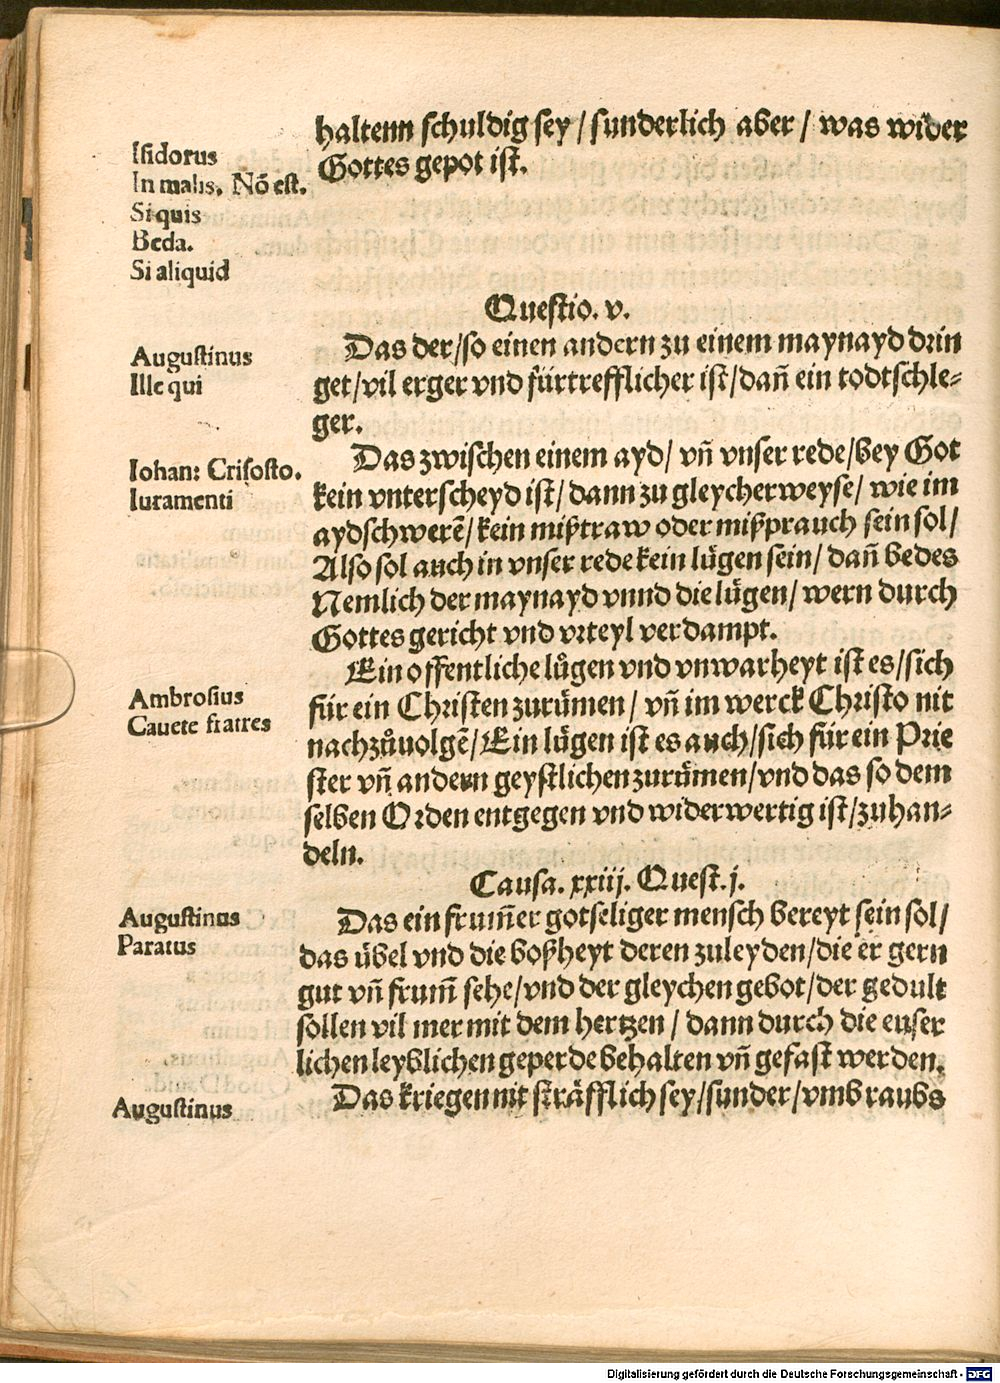 haltenn schuldig sey / sunderlich aber / was wider
Gottes gepot ist.
Isidorus
In malis. Nō est.
Si quis
Beda.
Si aliquid
Questio. v.
Augustinus
Ille qui
Das der/so einen andern zu einem maynayd drin
get/vil erger vnd fürtrefflicher ist/dañ ein todtschle-
ger.
Iohan: Crisosto.
Iuramenti
Das zwischen einem ayd/ vñ vnser rede/bey Got
kein vnterscheyd ist/ dann zu gleycherweyse/ wie im
aydschwerē/ kein mißtraw oder mißprauch sein sol/
Also sol auch in vnser rede kein lügen sein/ dañ bedes
Nemlich der maynayd vnnd die lügen/ wern durch
Gottes gericht vnd vrteyl verdampt.
Ambrosius
Cauete fratres
Ein offentliche lůgen vnd vnwarheyt ist es/sich
für ein Christen zurümen/ vñ im werck Christo nit
nachzůuolgē/Ein lügen ist es auch/sich für ein Prie
ster vñ andern geystlichen zurümen/vnd das so dem
selben Orden entgegen vnd widerwertig ist/zuhan-
deln.
Causa. xxiij. Quest. j.
Augustinus
Paratus
Das ein frum̄er gotseliger mensch bereyt sein sol/
das übel vnd die boßheyt deren zuleyden/die er gern
gut vñ frum̄ sehe/vnd der gleychen gebot/der gedult
sollen vil mer mit dem hertzen / dann durch die euser
lichen leyblichen geperde behalten vñ gefast werden.
Augustinus
Das kriegen nit sträfflich sey/sunder/vmb raubs
Digitalisierung gefördert durch die Deutsche Forschungsgemeinschaft - DFG